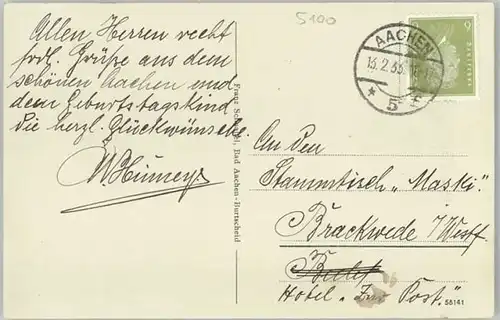 5100
Allen Herren recht
frdl. Grüße aus dem
schönen Aachen und
dem Geburtstagskind
die herzl. Glückwünsche.
AACHEN
13.2.33.
5
6
An Den
Stammtisch „Maski"
Brackwede i/Westf
Hotel „Zur Post."
Bad Aachen-Burtscheid
Franz
58141